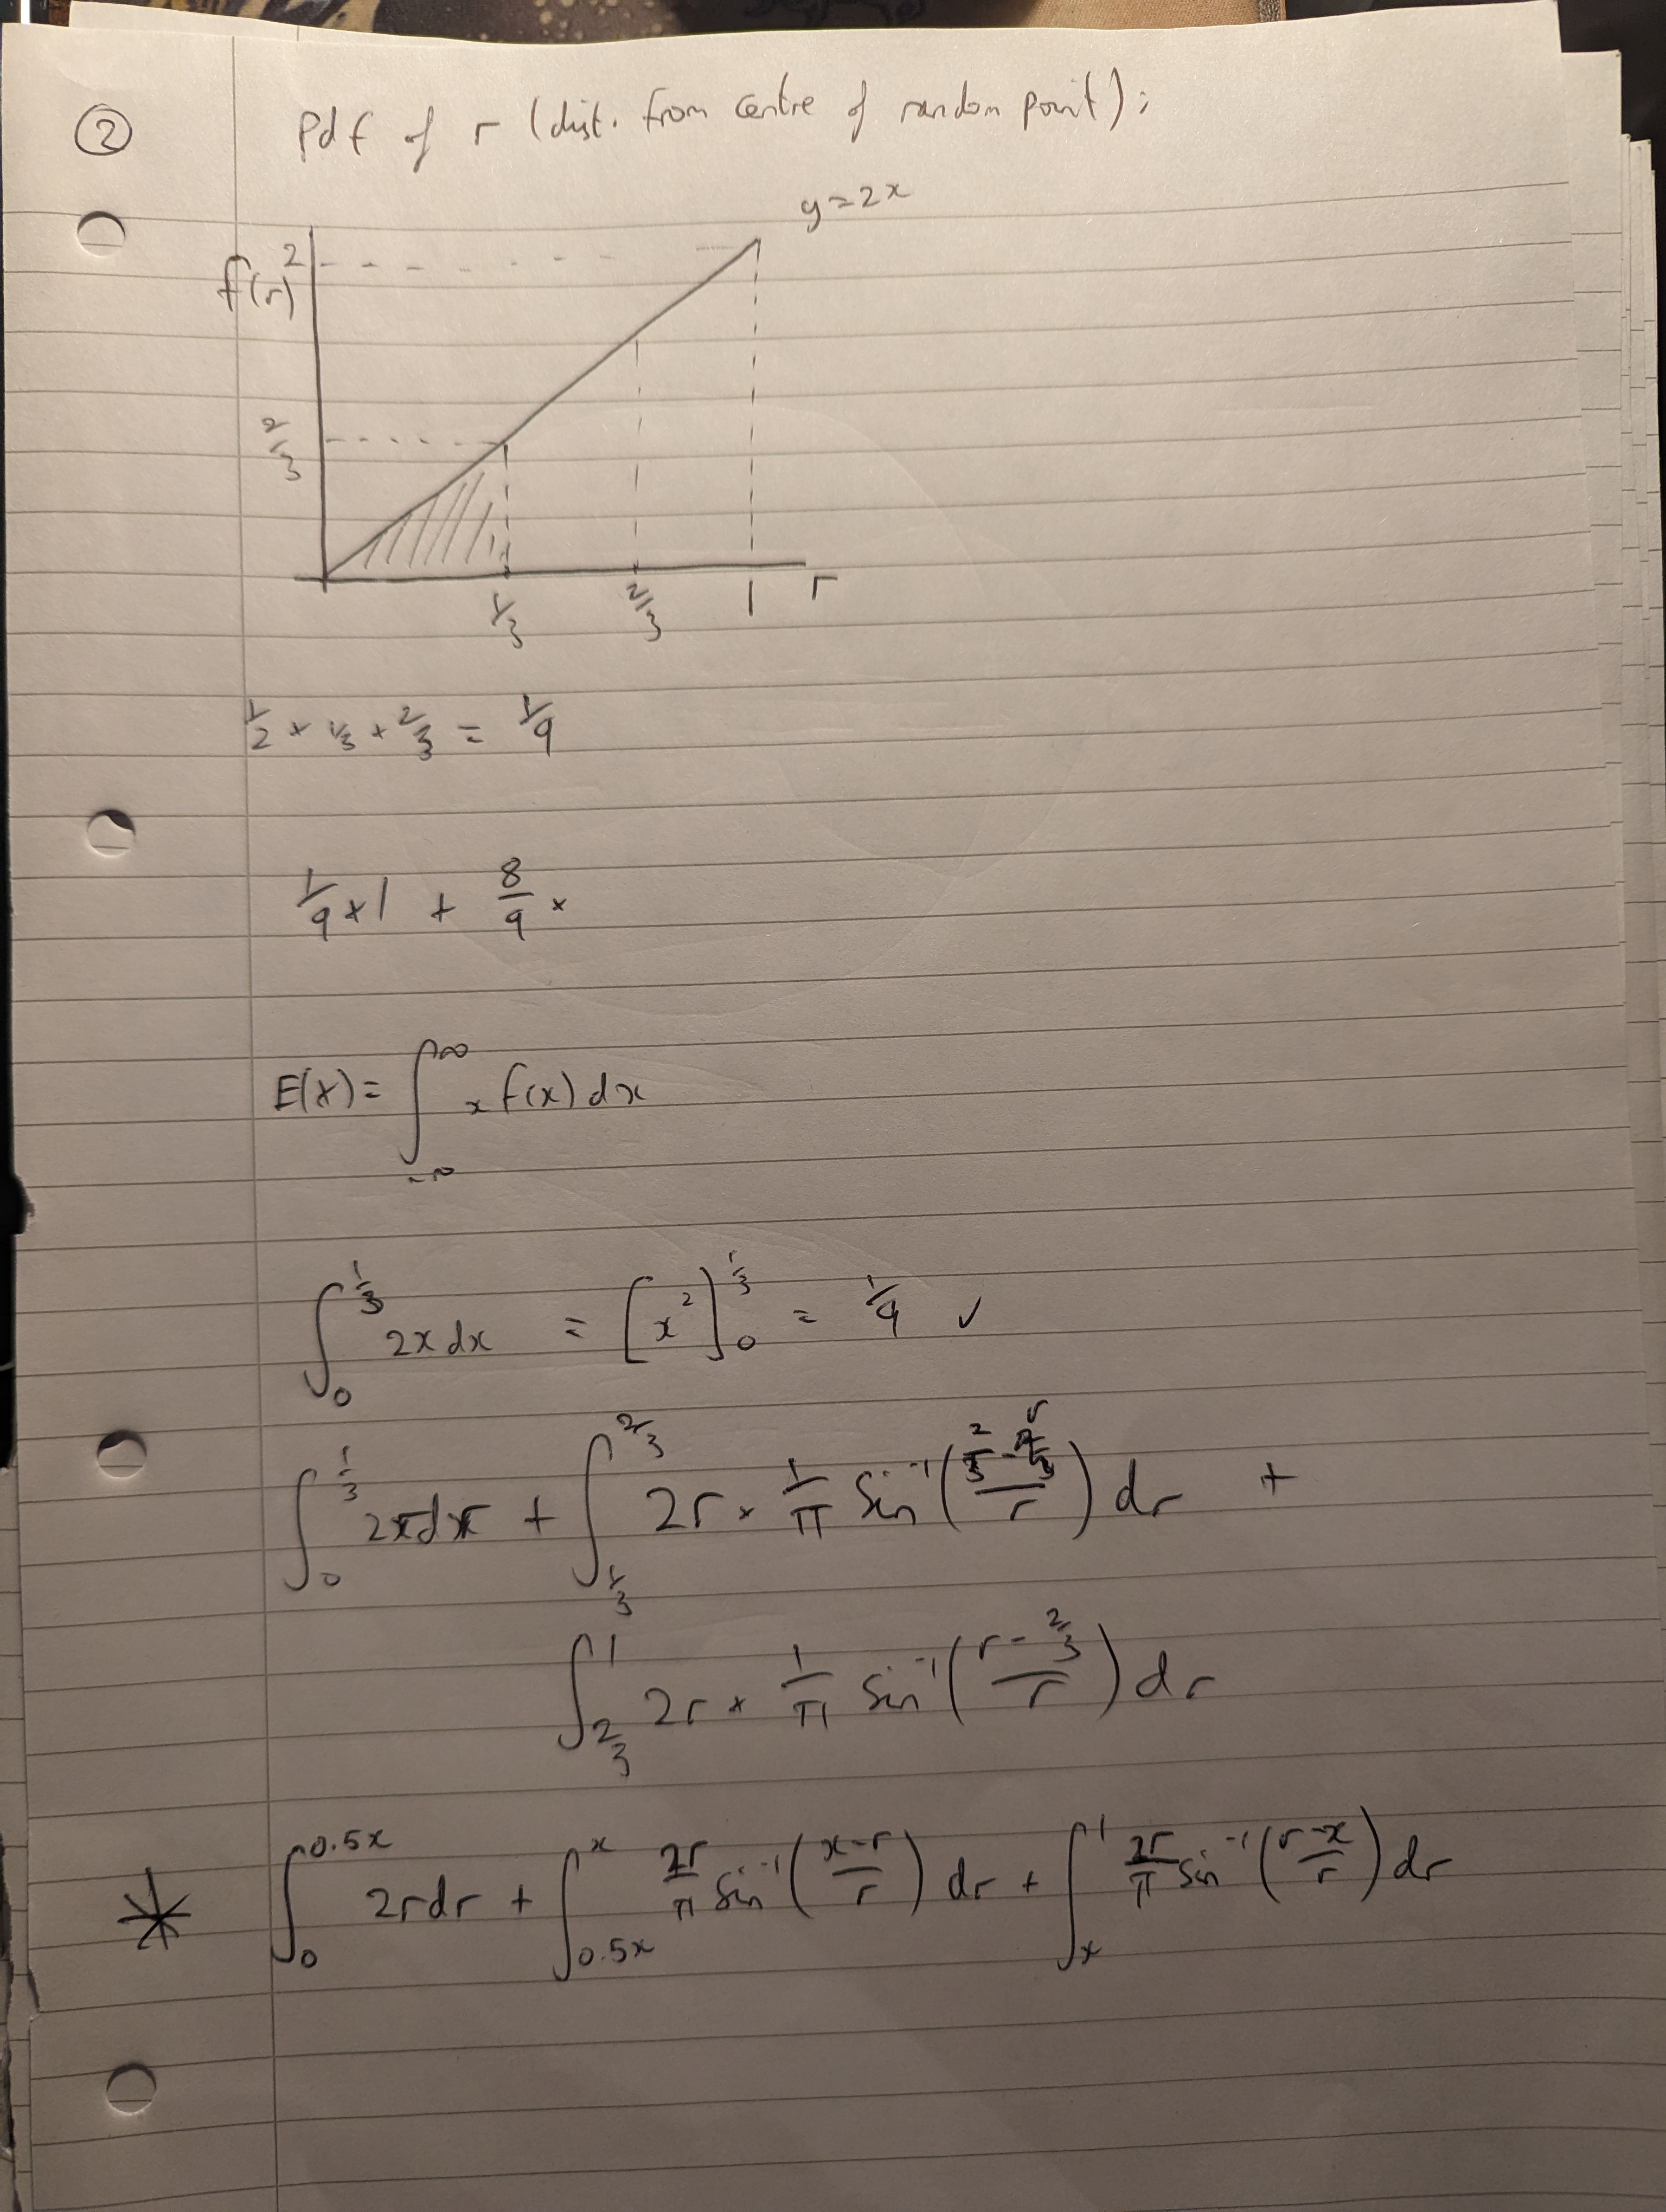 ② Pdf of r (dist. from centre of random point);
y=2x
2
f(r)
2/3
1/3 2/3 1 r
1/2 × 1/3 × 2/3 = 1/9
1/9 × 1 + 8/9 ×
E(X) = ∫_{-∞}^{∞} x f(x) dx
∫_0^{1/3} 2x dx = [x²]_0^{1/3} = 1/9 ✓
∫_0^{1/3} 2r dr + ∫_{1/3}^{2/3} 2r × 1/π sin⁻¹((2/3 - r)/r) dr +
∫_{2/3}^1 2r × 1/π sin⁻¹((r - 2/3)/r) dr
* ∫_0^{0.5x} 2r dr + ∫_{0.5x}^x 2r/π sin⁻¹((x-r)/r) dr + ∫_x^1 2r/π sin⁻¹((r-x)/r) dr